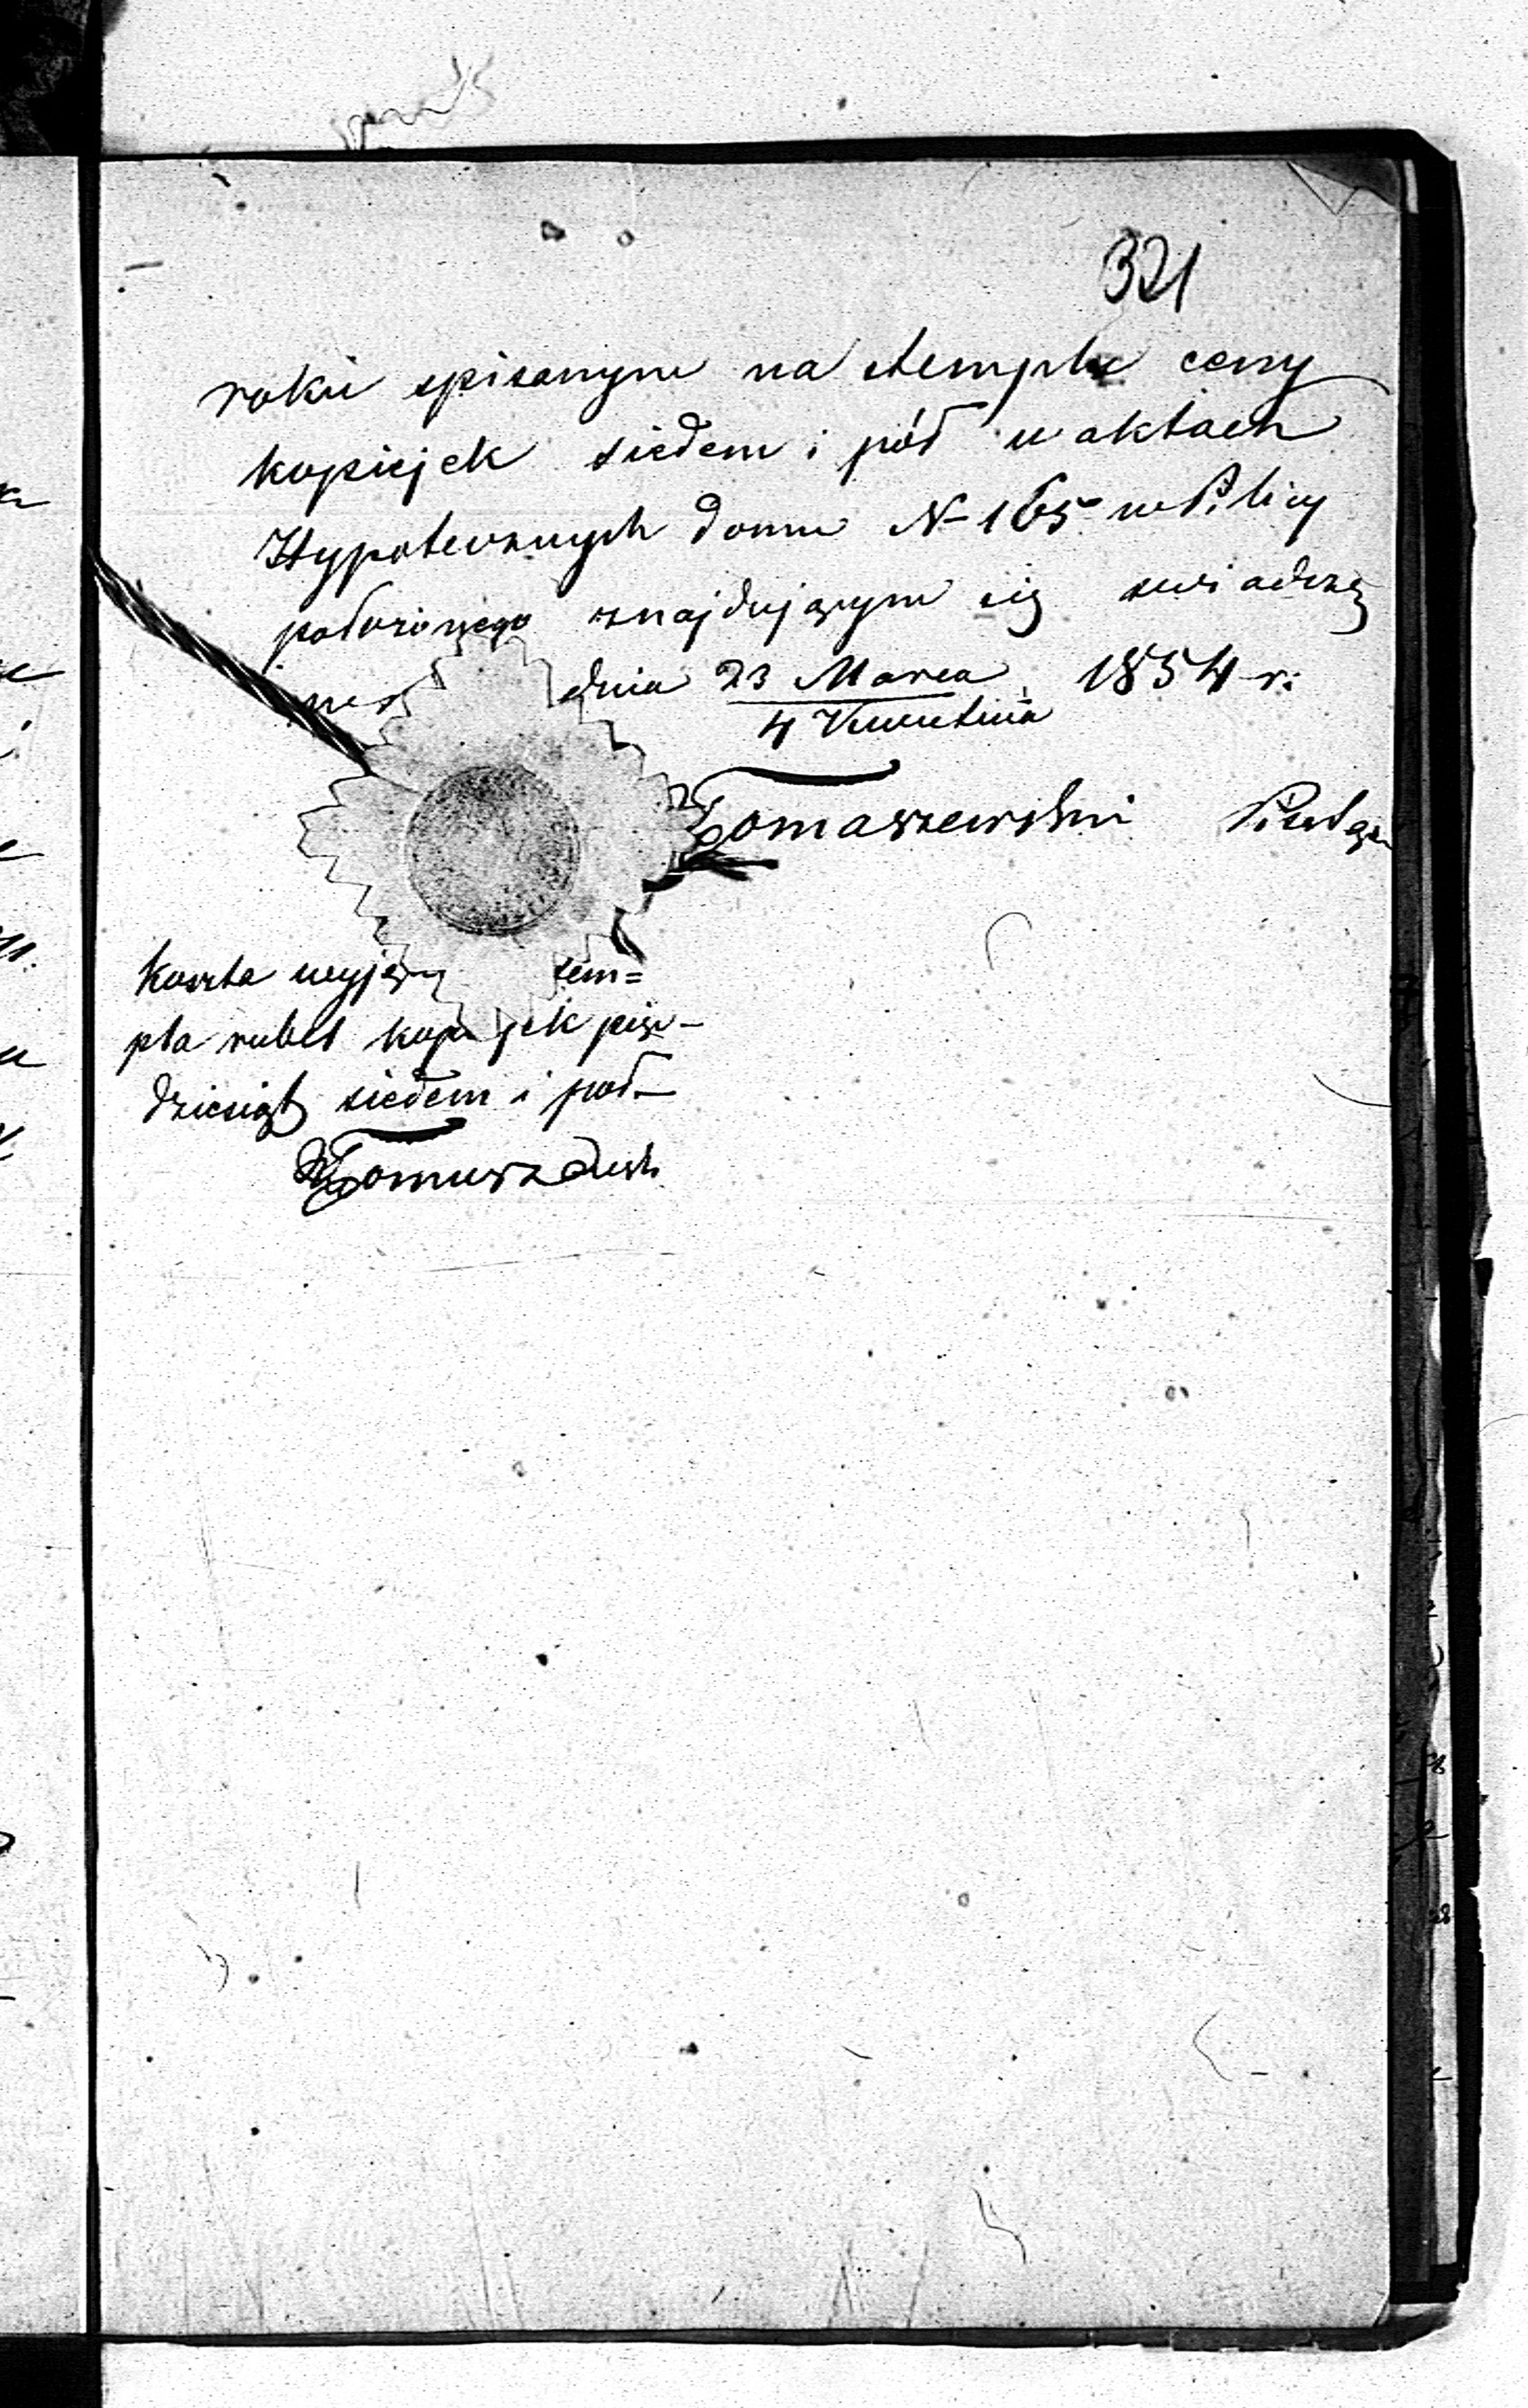 321
roku spisanym na stemplu ceny
kopiejek siedem i pół w aktach
Hypotecznych domu N 165 w Pilicy
położonego znajdującym się swiadczę
dnia 23 Marca 1854 r:
4 Kwietnia
Tomaszewski
Koszta wyjęcia stem=
pla rubel kopiejek pięć-
dziesiąt siedem i pół
Tomaszewski